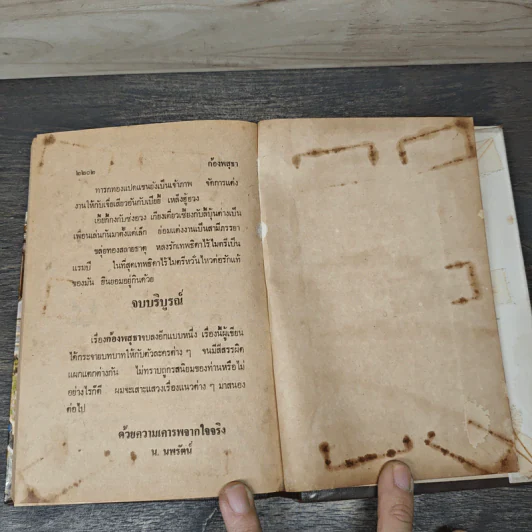 ๒๒๐๒
ก้องพสุธา
ทารกทองแปดแขนยังเป็นเจ้าภาพ จัดการแต่ง
งานให้กับเซี่ยเสียวฮันกับเปียฮี้ เหล็งฮู้อวง
เอี้ยก็กงกับซ่งฮวง เกียงเคี้ยวเซี้ยงกับลี้บุ้นต่างเป็น
เพื่อนเล่นกันมาตั้งแต่เล็ก ย่อมแต่งงานเป็นสามีภรรยา
ขลุ่ยทองสลายธาตุ หลงรักเทพธิดาไร้ไมตรีเป็น
แรมปี ในที่สุดเทพธิดาไร้ไมตรีหวั่นไหวต่อรักแท้
ของมัน ยินยอมอยู่กินด้วย
จบบริบูรณ์
เรื่องก้องพสุธาจบลงอีกแบบหนึ่ง เรื่องนี้ผู้เขียน
ได้กระจายบทบาทให้กับตัวละครต่าง ๆ จนมีสีสรรผิด
แผกแตกต่างกัน ไม่ทราบถูกรสนิยมของท่านหรือไม่
อย่างไรก็ดี ผมจะเสาะแสวงเรื่องแนวต่าง ๆ มาสนอง
ต่อไป
ด้วยความเคารพจากใจจริง
น. นพรัตน์